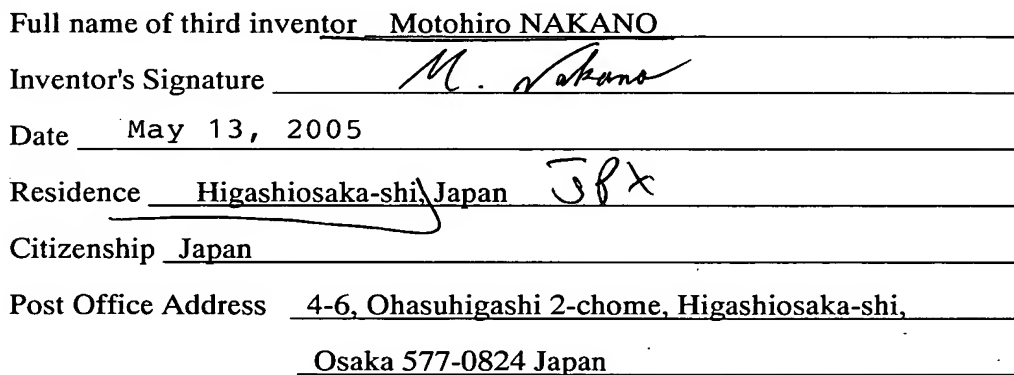 Full name of third inventor Motohiro NAKANO
Inventor's Signature M. Nakano
Date May 13, 2005
Residence Higashiosaka-shi, Japan JPX
Citizenship Japan
Post Office Address 4-6, Ohasuhigashi 2-chome, Higashiosaka-shi,
Osaka 577-0824 Japan